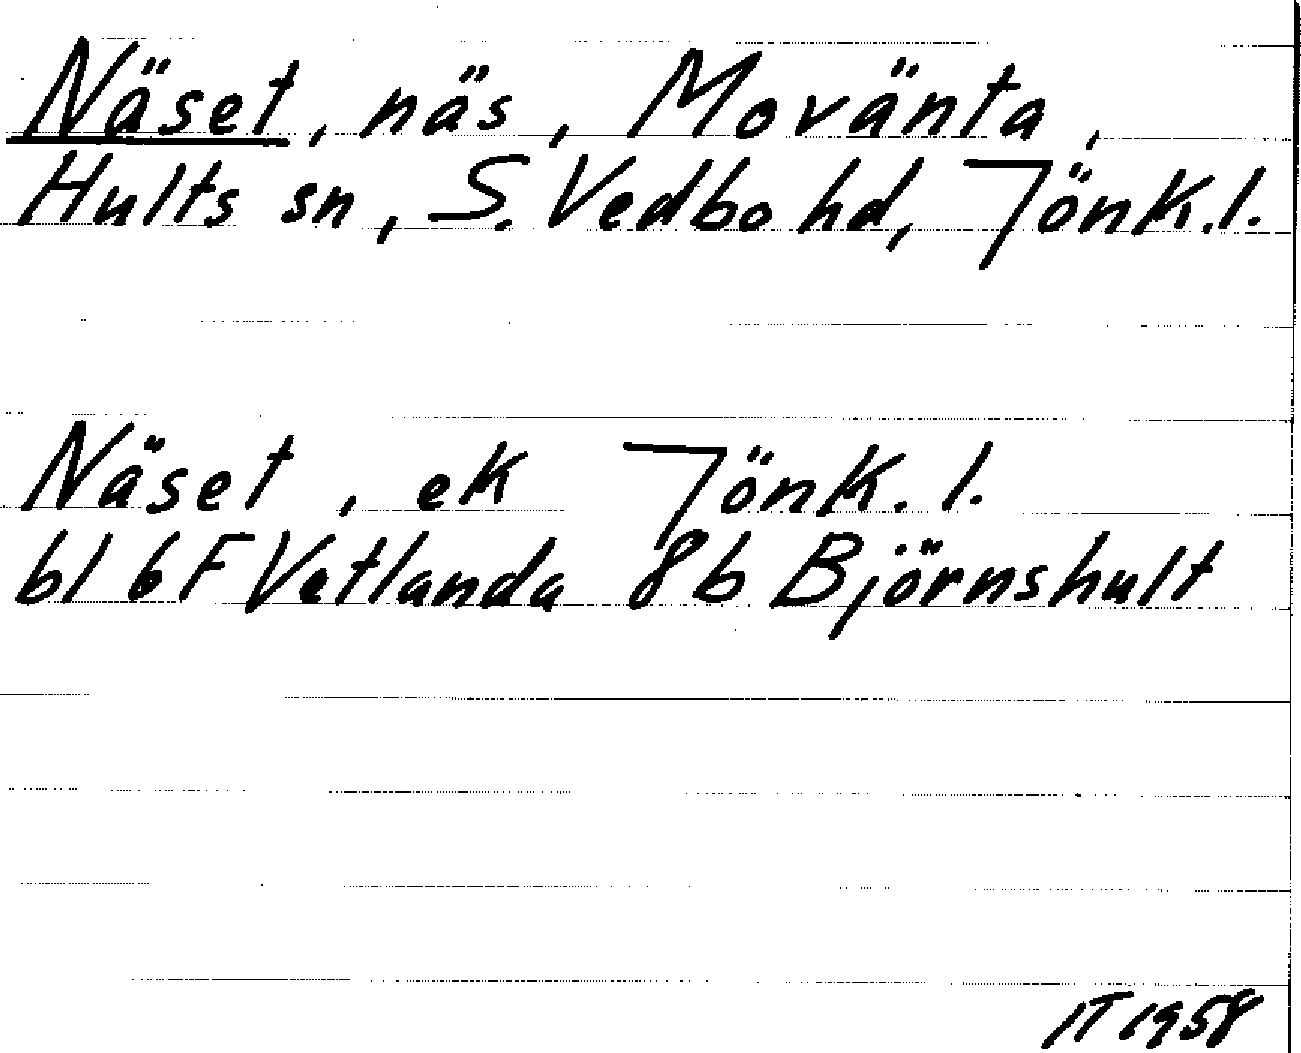 Näset, näs, Movänta,
Hults sn, S. Vedbo hd, Jönk.l.
Näset, ek Jönk.l.
bl 6F Vetlanda 8b Björnshult
IT 1958